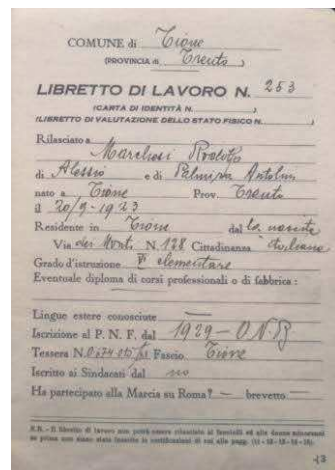 COMUNE di Tione
(PROVINCIA di Trento)
LIBRETTO DI LAVORO N. 253
(CARTA DI IDENTITÀ N. )
(LIBRETTO DI VALUTAZIONE DELLO STATO FISICO N. )
Rilasciato a
Marchesi Rodolfo
di Alessio e di Palmira Antolini
nato a Tione Prov. Trento
il 20/9-1923
Residente in Tione dal la nascita
Via dei Monti N. 128 Cittadinanza italiana
Grado d'istruzione Vª elementare
Eventuale diploma di corsi professionali o di fabbrica :
Lingue estere conosciute —
Iscrizione al P. N. F. dal 1929 - O.N.B
Tessera N. Fascio Tione
Iscritto ai Sindacati dal no
Ha partecipato alla Marcia su Roma? — brevetto —
N.B. - Il libretto di lavoro non potrà essere rilasciato ai fanciulli ed alle donne minorenni
se prima non siano state inserite le certificazioni di cui alle pagg.